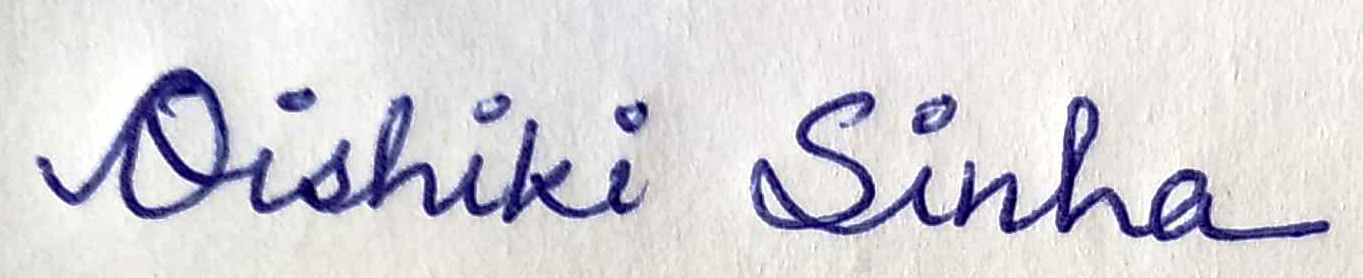 Oishiki Sinha